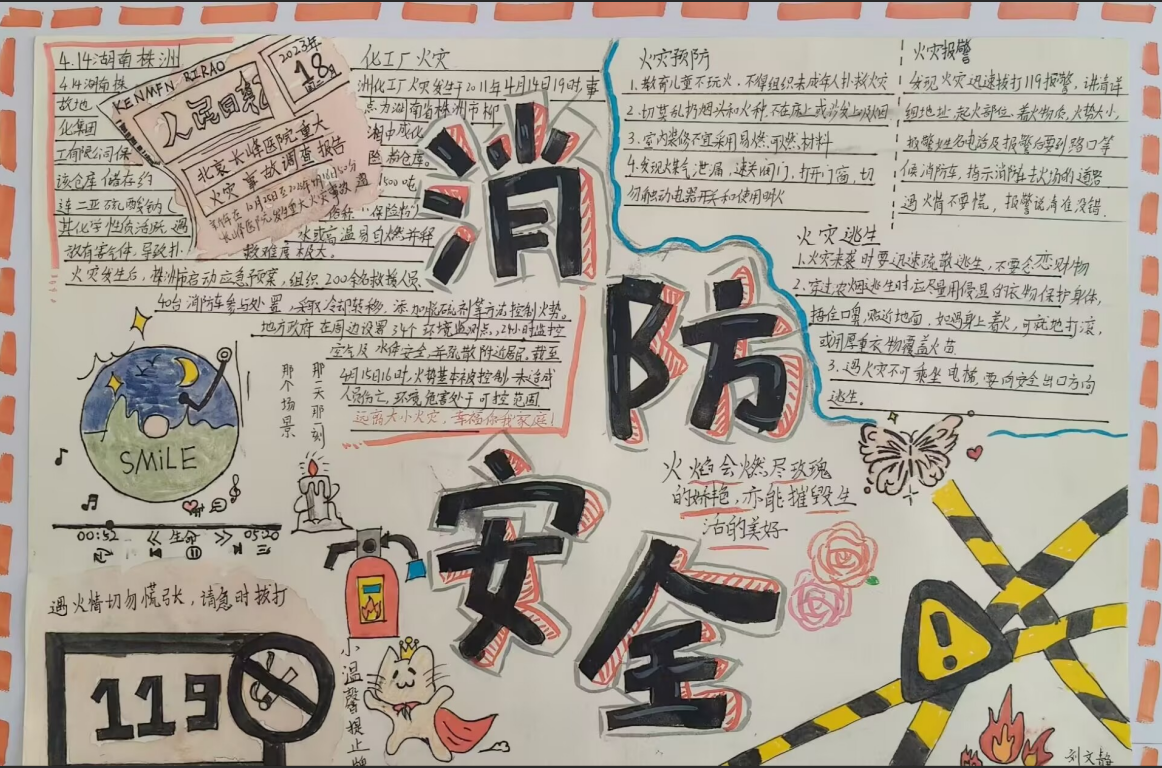 4.14湖南株洲
化工厂火灾
4.14湖南株
洲化工厂火灾发生于2011年4月14日19时,事
故地
点为湖南省株洲市柳
化集团
湖中成化
工有限公司保
险粉仓库。
该仓库储存约
1500吨
连二亚硫酸钠(
俗称"保险粉")
其化学性质活泼,遇
水或高温易自燃并释
放有害气体,导致扑
救难度极大。
火灾发生后,株洲市启动应急预案,组织200名救援人员
40台消防车参与处置,采取冷却转移、添加
等方法控制火势。
地方政府在周边设置34个环境监测点,24小时监控
空气及水体安全,并疏散附近居民,截至
4月15日16时,火势基本被控制,未造成
人员伤亡,环境危害处于可控范围
远离大小火灾,幸福你我家庭!
KENMFN RIRAO
人民日报
2023年
18
北京长峰医院重大
火灾事故调查报告
长峰医院发生重大火灾事故
消
防
安
全
火灾预防
1.教育儿童不玩火,不得组织未成年人扑救火灾
2.切莫乱扔烟头和火种,不在床上或沙发上吸烟
3.室内装修不宜采用易燃、可燃材料
4.发现煤气泄漏,速关阀门,打开门窗,切
勿触动电器开关和使用明火
火灾报警
发现火灾迅速拨打119报警,讲清详
细地址、起火部位、着火物质、火势大小、
报警姓名电话及报警后要到路口等
候消防车,指示消防车去火场的道路
遇火情不要慌,报警说清在没错.
火灾逃生
1.火灾来袭时要迅速疏散逃生,不要恋财物
2.穿过浓烟逃生时应尽量用浸湿的衣物保护身体,
捂住口鼻,贴近地面,如遇身上着火,可就地打滚,
或用厚重衣物覆盖火苗
3.遇火灾不可乘坐电梯,要向安全出口方向
逃生。
那一天那一刻
那个场景
SMiLE
00:52
生命
05:20
火焰会燃尽玫瑰
的娇艳,亦能摧毁生
活的美好
遇火情切勿慌张,请急时拔打
119
小温馨提止牌
刘文静